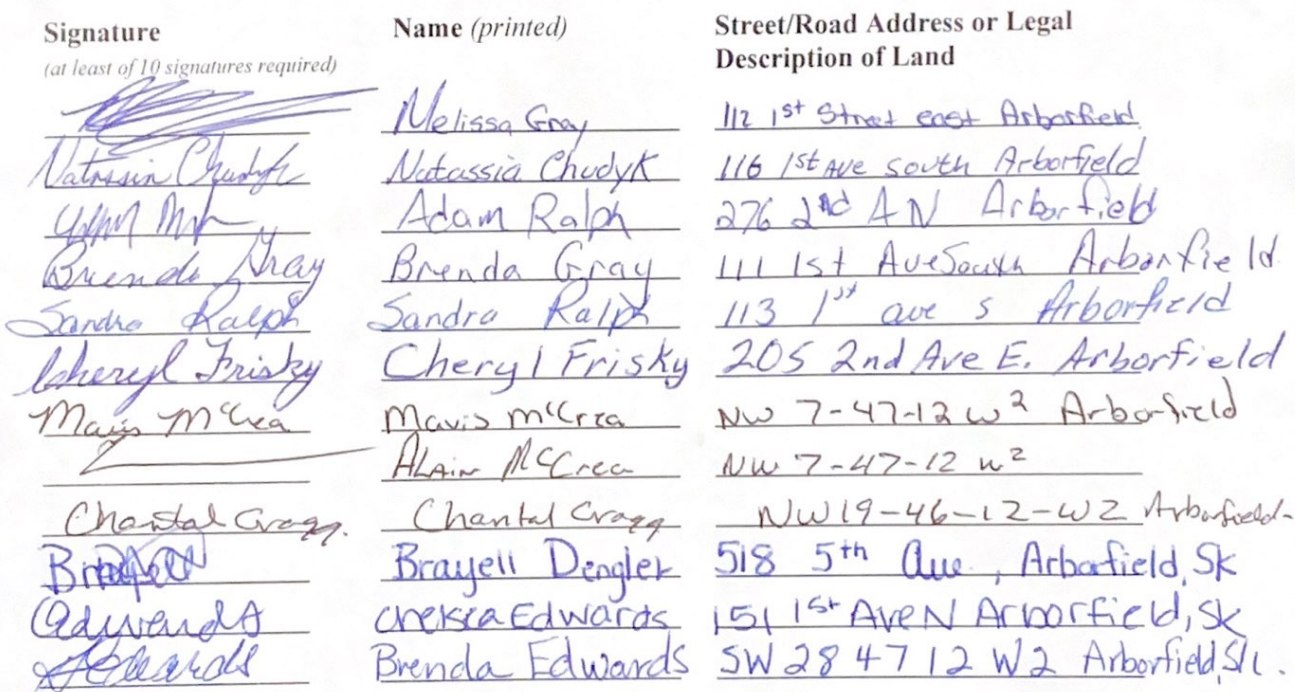 Signature Name (printed) Street/Road Address or Legal
(at least of 10 signatures required) Description of Land
Melissa Gray 112 1st Street east Arborfield
Natassia Chudyk Natassia Chudyk 116 1st Ave South Arborfield
Adam Ralph 276 2nd A N Arborfield
Brenda Gray Brenda Gray 111 1st Ave South Arborfield
Sandra Ralph Sandra Ralph 113 1st ave s Arborfield
Cheryl Frisky Cheryl Frisky 205 2nd Ave E. Arborfield
Mavis McCrea Mavis McCrea NW 7-47-12 W2 Arborfield
Alain McCrea NW 7-47-12 W2
Chantal Cragg. Chantal Cragg NW19-46-12-W2 Arborfield
Brayell Dengler 518 5th Ave, Arborfield, Sk
Edwards Chelsea Edwards 151 1st Ave N Arborfield, Sk
Edwards Brenda Edwards SW 28 47 12 W2 Arborfield, Sk.